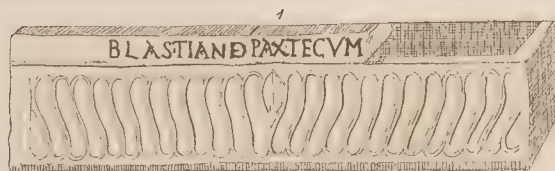 1
BLASTIANE PAXTECVM